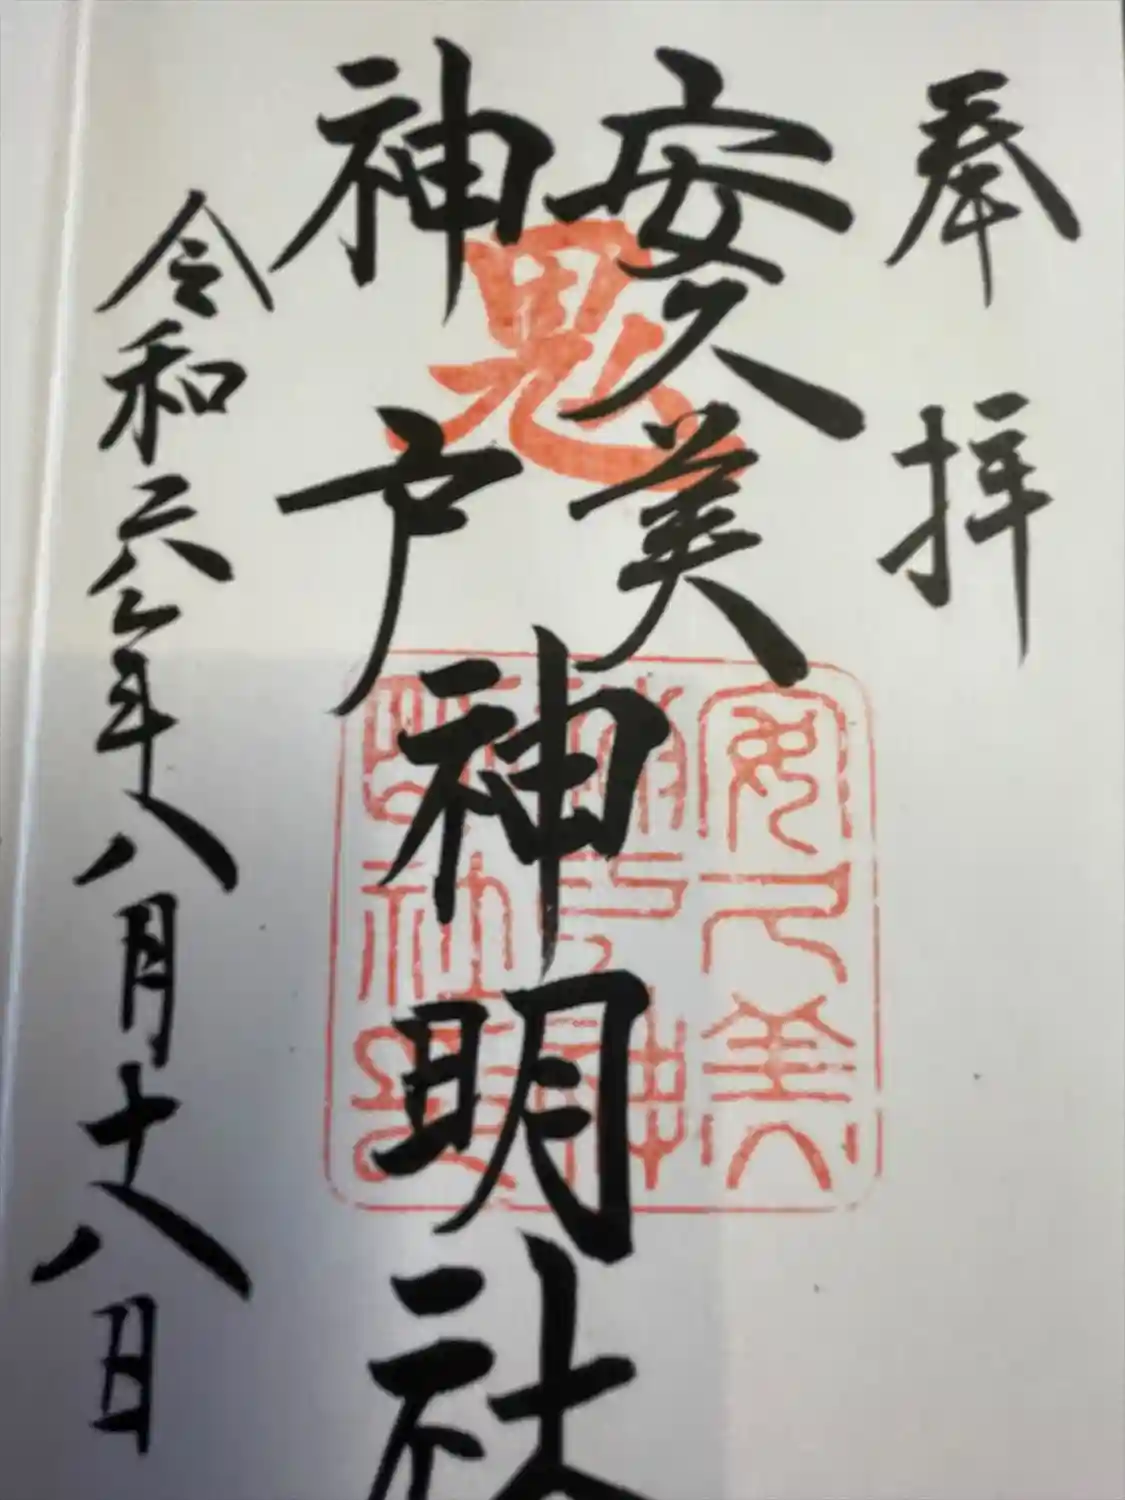 奉拝
安久美
神戸
神明社
令和六年八月十八日
鬼
安久美
神戸神
明社